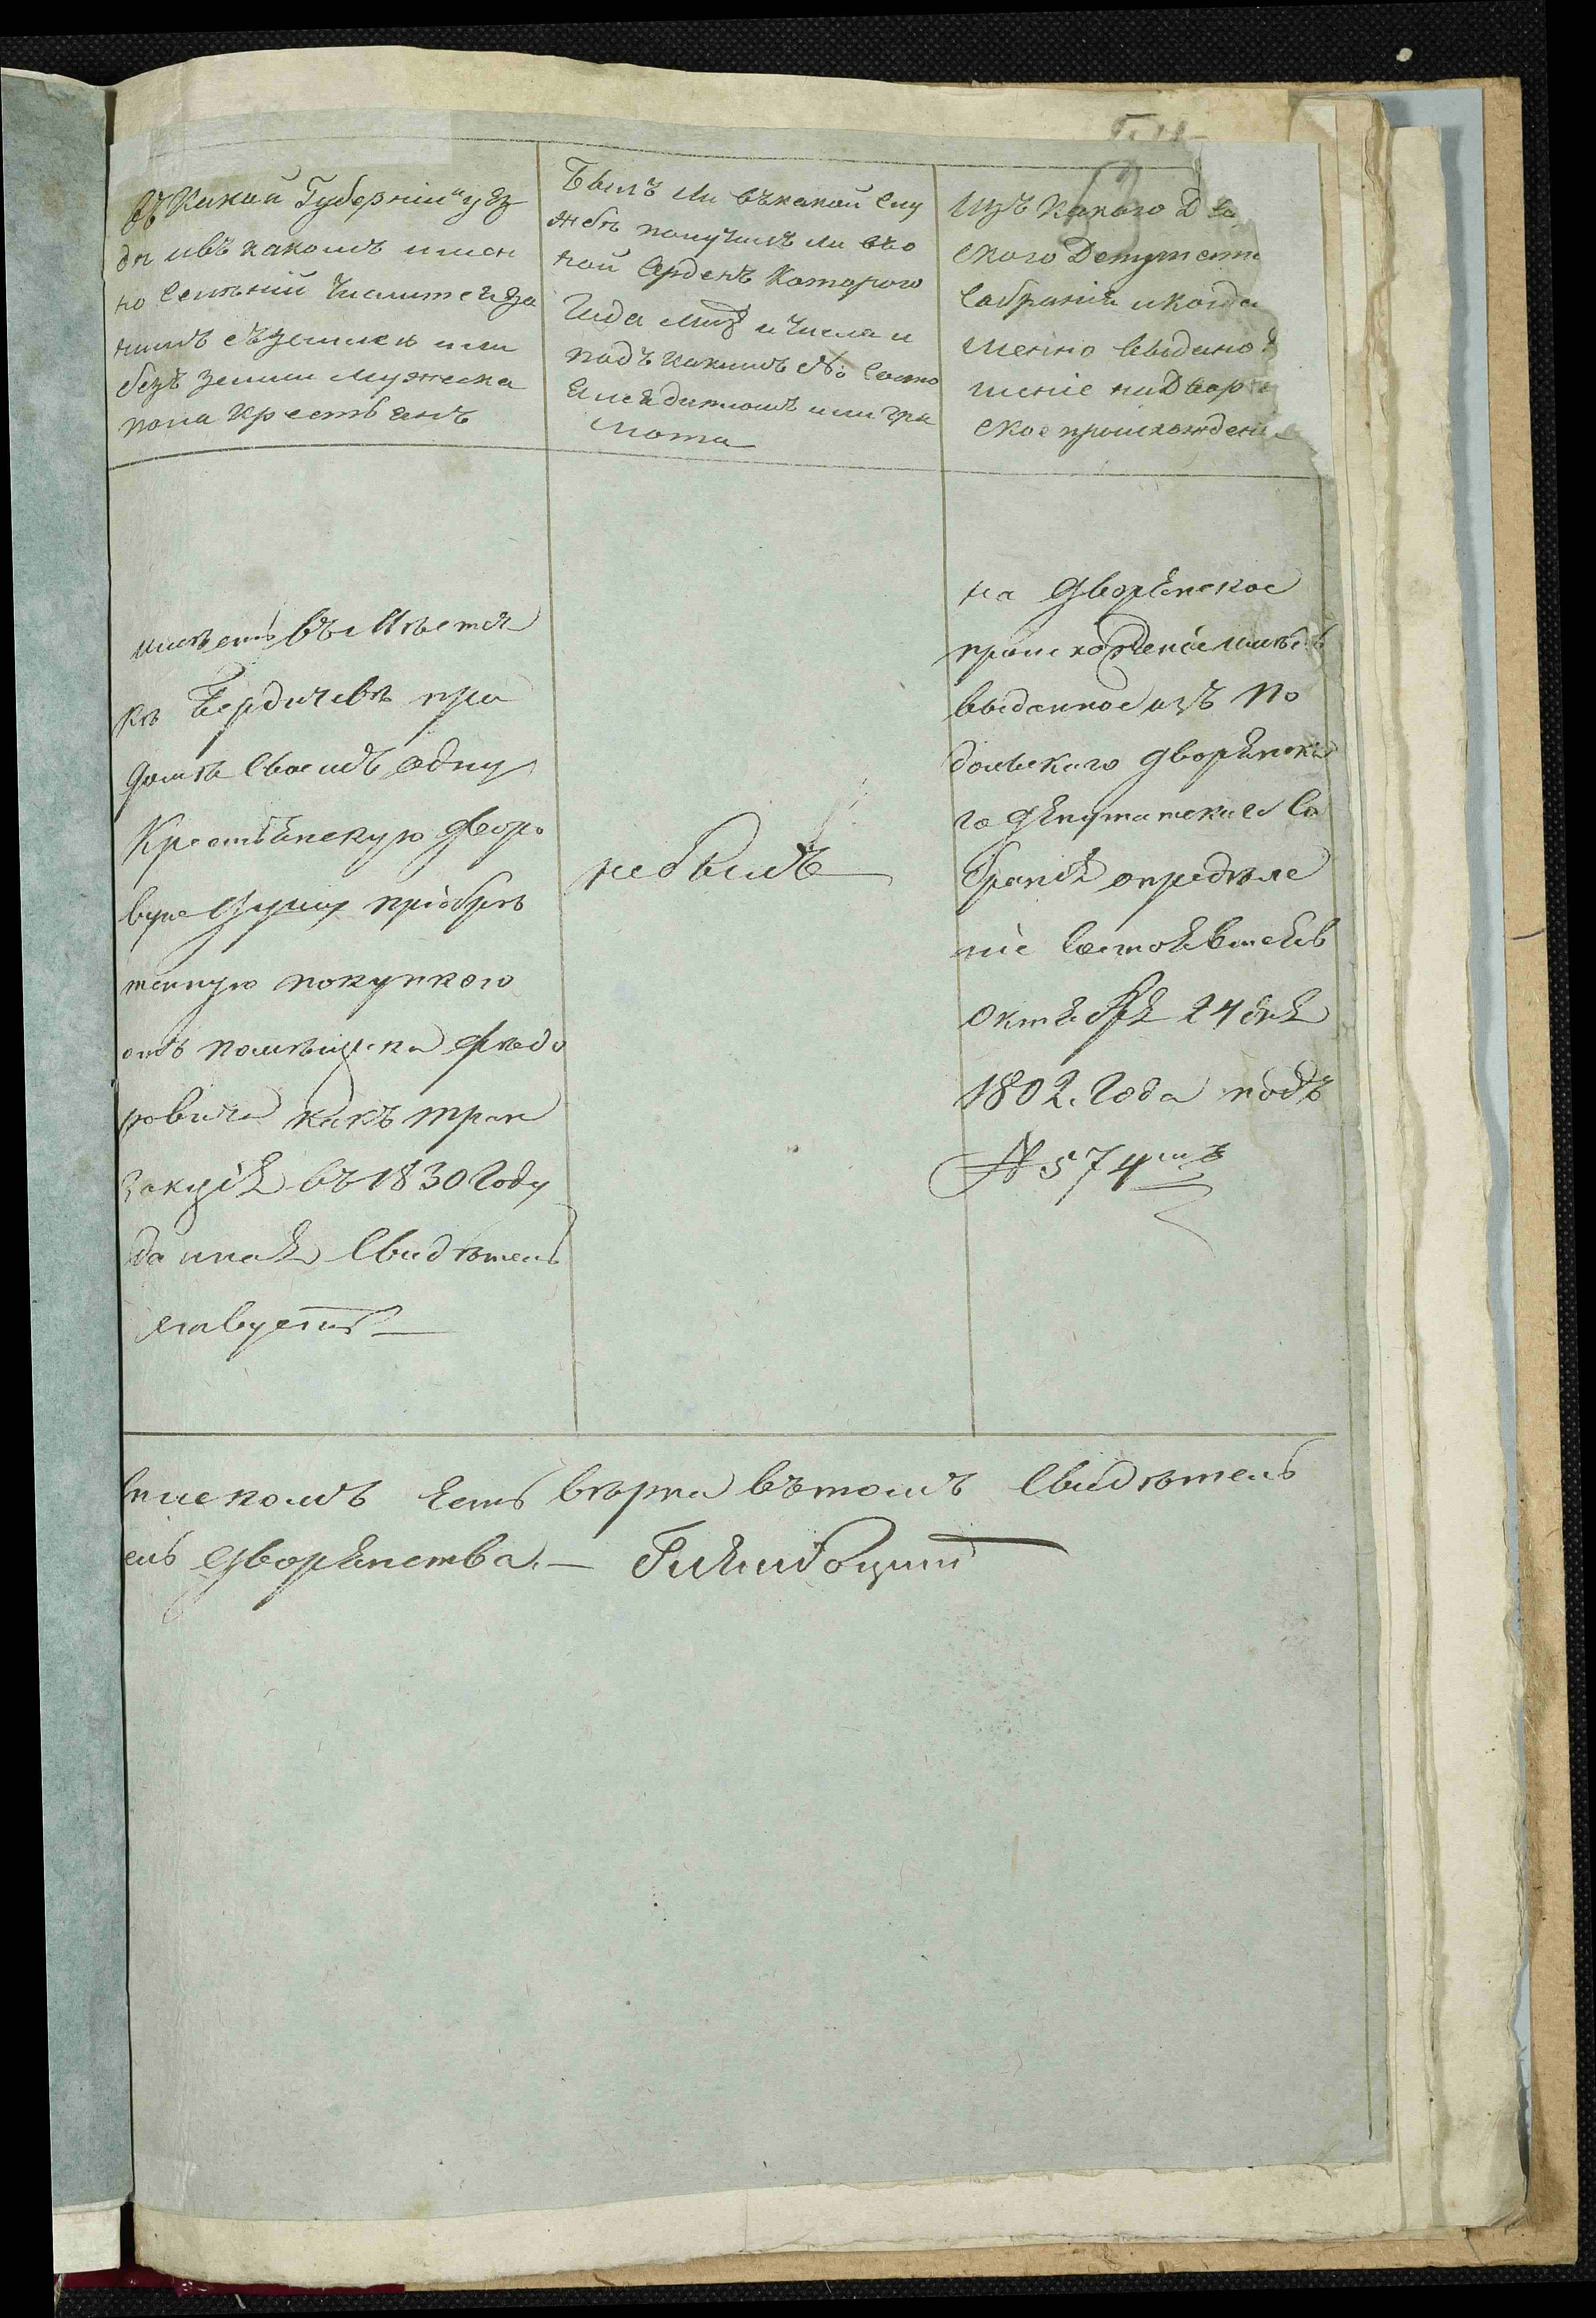 въ Какой Губерніи и уѣз
дѣ и въ какомъ имен
но Селеніи Числится за
нимъ съ землею или
безъ земли мужеска
пола Крестьянъ
Былъ ли въ какой Слу
жбѣ получилъ ли въ о
ной Орденъ Которого
Года мца и Числа и
подъ какимъ № Состо
ялся дипломъ или гра
мота
Изъ Какого Д во
ского Депутатс
Собранія и когда
менно Выдано
шеніе на Дворя
ское происхожденіе
имѣетъ въ Мѣстеч
кѣ Бердичевѣ при
домѣ Своемъ одну
Крестьянскую дворо
вую душу пріобрѣ
тенную покупкою
отъ помѣщика Федо
ровича какъ тран
закція въ 1830 Году
данная Свидѣтель
ствуетъ
не былъ
на дворянское
происхожденіе имѣетъ
выданное изъ По
дольскаго дворянска
го депутатскаго Со
бранія опредѣле
ніе Состоявшеесь
октября 24 дня
1802. Года подъ
№ 574мъ
спискомъ есть вѣрна въ томъ Свидѣтель
ель дворянства.—